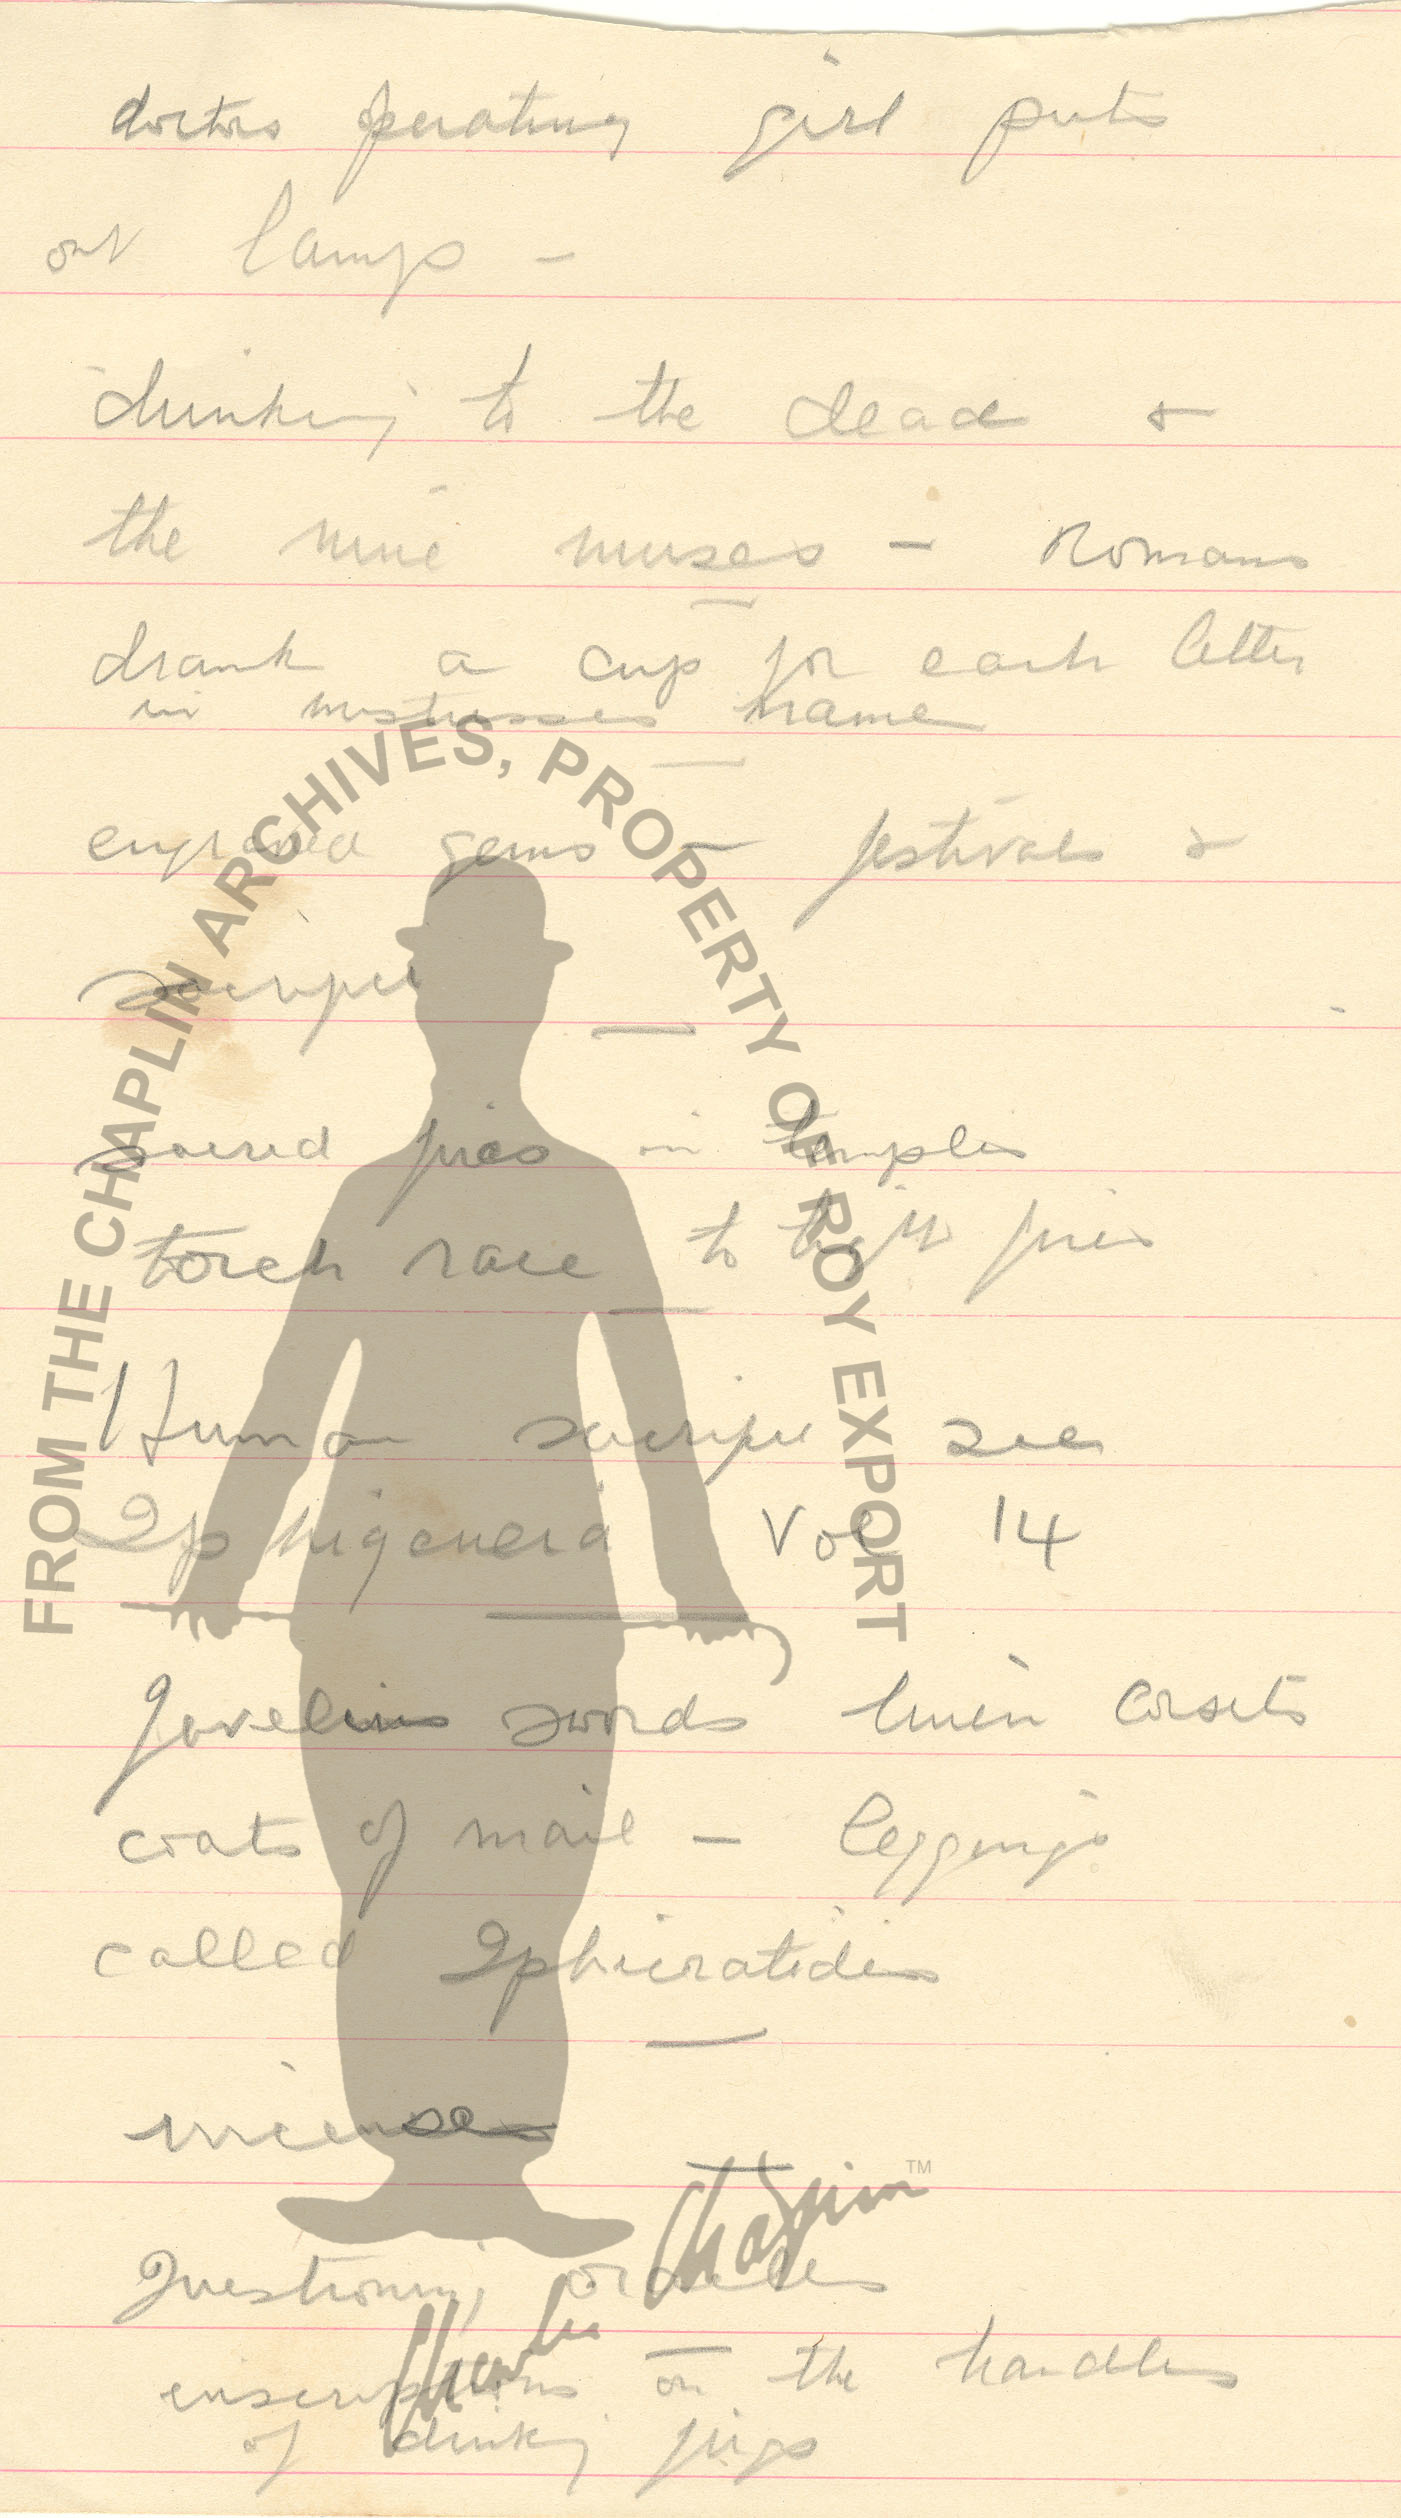 doctors operating girl puts
out lamps -
drinking to the dead &
the nine muses - Romans
drank a cup for each letter
in mistresses name
engraved gems - festivals &
sacrifice
sacred fires in temples
torch race to light fires
Human sacrifice see
Iphigeneia Vol 14
Javelins swords linen corsets
coats of mail - leggings
called Iphicratides
incense
Questioning oracles
enscriptions on the handles
of drinking jugs
FROM THE CHAPLIN ARCHIVES, PROPERTY OF ROY EXPORT
Charlie Chaplin™